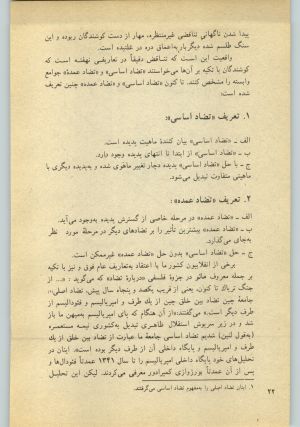 پیدا شدن ناگهانی تناقضی غیرمنتظره، مهار از دست کوشندگان ربوده و این
سنگ طلسم شده دیگر بار به‌اعماق دره در غلتیده است.
واقعیت این است که تناقض دقیقاً در تعاریفی نهفته است که
کوشندگان با تکیه بر آن‌ها می‌خواستند «تضاد اساسی» و «تضاد عمده» جوامع
وابسته را مشخص کنند. تا کنون «تضاد اساسی» و «تضاد عمده» چنین تعریف
شده است:
۱. تعریف «تضاد اساسی»:
الف ـ «تضاد اساسی» بیان کنندۀ ماهیت پدیده است.
ب ـ «تضاد اساسی» از ابتدا تا انتهای پدیده وجود دارد.
ج ـ با حل «تضاد اساسی» پدیده دچار تغییر ماهوی شده و به‌پدیده دیگری با
ماهیتی متفاوت تبدیل می‌شود.
۲. تعریف «تضاد عمده»:
الف ـ «تضاد عمده» در مرحله خاصی از گسترش پدیده به‌وجود می‌آید.
ب ـ «تضاد عمده» بیشترین تأثیر را بر تضادهای دیگر در مرحلۀ مورد نظر
به‌جای می‌گذارد.
ج ـ حل «تضاد اساسی» بدون حل «تضاد عمده» غیرممکن است.
برخی از انقلابیون کشور ما با اعتقاد به‌تعاریف عام فوق و نیز با تکیه
بر جمله معروف مائو در جزوۀ فلسفی «دربارۀ تضاد» که می‌گوید: «... از
جنگ تریاک تا کنون، یعنی از قریب یکصد و پنجاه سال پیش، تضاد اصلی۱،
جامعۀ چین تضاد بین خلق چین از یك طرف و امپریالیسم و فئودالیسم از
طرف دیگر است.» می‌گفتند: «از آن هنگام که پای امپریالیسم به‌میهن ما باز
شد و در زیر سرپوش استقلال ظاهری تبدیل به‌کشوری نیمه مستعمره
(به‌قول لنین) شدیم تضاد اساسی جامعۀ ما عبارت از تضاد بین خلق از یك
طرف و امپریالیسم و پایگاه داخلی آن از طرف دیگر بوده است». اینان در
تحلیل‌های خود پایگاه داخلی امپریالیسم را تا سال ۱۳۴۱ عمدتاً فئودال‌ها و
پس از آن عمدتاً بورژوازی کمپرادور معرفی می‌کردند. لیکن این تحلیل
۱. اینان تضاد اصلی را به‌مفهوم تضاد اساسی می‌گرفتند.
۲۲